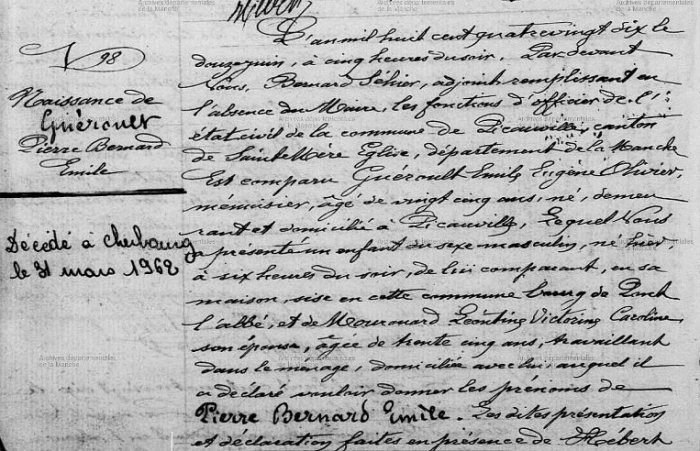 N° 98
Naissance de
Guéroult
Pierre Bernard
Emile
Décédé à Cherbourg
le 31 mars 1962
L'an mil huit cent quatre vingt dix le
douze juin, à cinq heures du soir, Par devant
Nous, Bernard Séhier, adjoint remplissant en
l'absence du Maire, les fonctions d'officier de l'
état civil de la commune de Picauville, canton
de Sainte Mère Eglise, département de la Manche
Est comparu Guéroult Emile Eugène Olivier,
menuisier, âgé de vingt cinq ans, né, demeu
rant et domicilié à Picauville, Lequel Nous
a présenté un enfant du sexe masculin, né hier,
à six heures du soir, de lui comparant, en sa
maison, sise en cette commune bourg de Pont
l'abbé, et de Mouronard Léontine Victorine Caroline
son épouse, âgée de trente cinq ans, travaillant
dans le ménage, domiciliée avec lui, auquel il
a déclaré vouloir donner les prénoms de
Pierre Bernard Emile. Les dites présentation
et déclaration faites en présence de Hébert
Archives départementales de la Manche